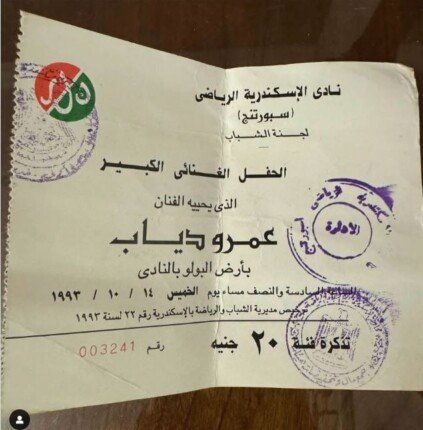 نادى الإسكندرية الرياضى
(سبورتنج)
لجنة الشباب
الحفل الغنائى الكبير
الذى يحييه الفنان
عمرو دياب
بأرض البولو بالنادى
السادسة والنصف مساء يوم الخميس ١٤ / ١٠ / ١٩٩٣
مديرية الشباب والرياضة بالإسكندرية رقم ٢٢ لسنة ١٩٩٣
تذكرة فئة ٢٠ جنيه
رقم 003241
الإدارة
سبورتنج